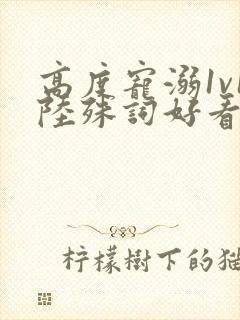 高度寵溺1v1
陸殊詞好看
柠檬樹下的猫